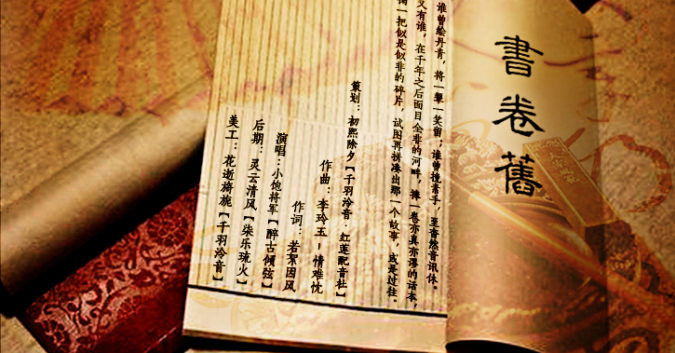 書卷舊
谁曾绘丹青，将一颦一笑留；谁曾挽素手，至杳然音讯休。
又有谁，在千年之后面目全非的河畔，捧一卷亦真亦谬的话本，
一把似是似非的碎片，试图再拼凑出那一个故事，或是过往。
策划：初熙除夕【千羽泠音·红莲配音社】
作曲：李玲玉-情难忱
作词：若絮因风
演唱：小炮将军【醉古倾弦】
后期：灵云清风【柴乐琉火】
美工：花逝旖旎【千羽泠音】